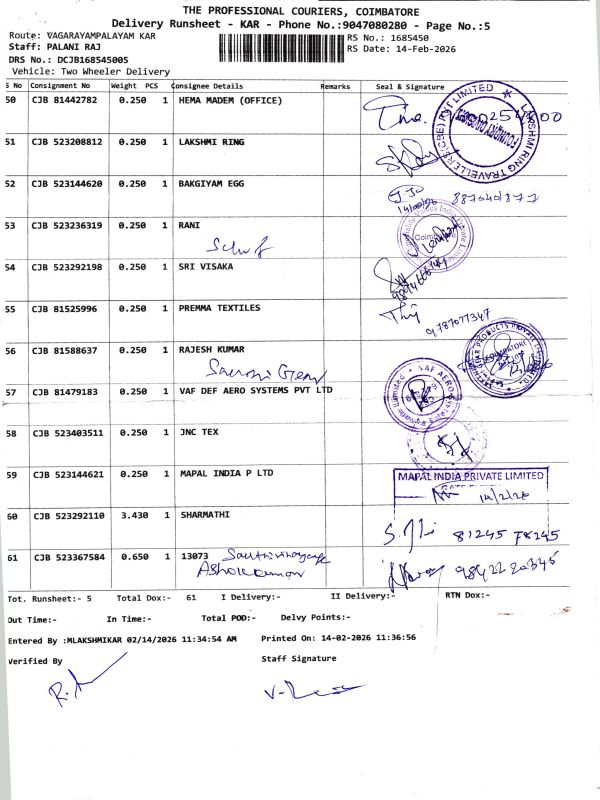 THE PROFESSIONAL COURIERS, COIMBATORE
Delivery Runsheet - KAR - Phone No.:9047080280 - Page No.:5
Route: VAGARAYAMPALAYAM KAR
RS No.: 1685450
Staff: PALANI RAJ
RS Date: 14-Feb-2026
DRS No.: DCJB168545005
Vehicle: Two Wheeler Delivery
S No Consignment No Weight PCS Consignee Details Remarks Seal & Signature
50 CJB 81442782 0.250 1 HEMA MADEM (OFFICE)
51 CJB 523208812 0.250 1 LAKSHMI RING
52 CJB 523144620 0.250 1 BAKGIYAM EGG
53 CJB 523236319 0.250 1 RANI
54 CJB 523292198 0.250 1 SRI VISAKA
55 CJB 81525996 0.250 1 PREMMA TEXTILES
9787077347
56 CJB 81588637 0.250 1 RAJESH KUMAR
57 CJB 81479183 0.250 1 VAF DEF AERO SYSTEMS PVT LTD
58 CJB 523403511 0.250 1 JNC TEX
59 CJB 523144621 0.250 1 MAPAL INDIA P LTD
MAPAL INDIA PRIVATE LIMITED
14/2/26
60 CJB 523292110 3.430 1 SHARMATHI
81245 78245
61 CJB 523367584 0.650 1 13073
Ashokkumar
Tot. Runsheet:- 5 Total Dox:- 61 I Delivery:- II Delivery:- RTN Dox:-
Out Time:- In Time:- Total POD:- Delvy Points:-
Entered By :MLAKSHMIKAR 02/14/2026 11:34:54 AM Printed On: 14-02-2026 11:36:56
Verified By Staff Signature